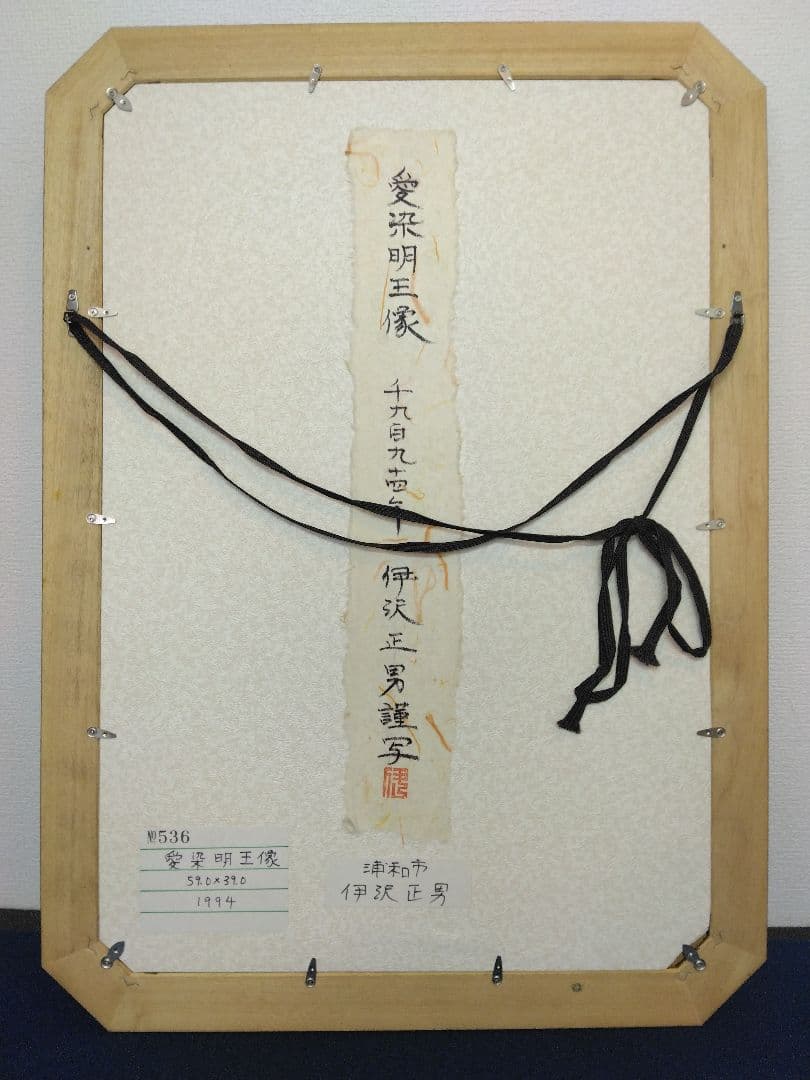 愛染明王像
千九百九十四年
伊沢正男謹写
№536
愛染明王像
59.0×39.0
1994
浦和市
伊沢正男